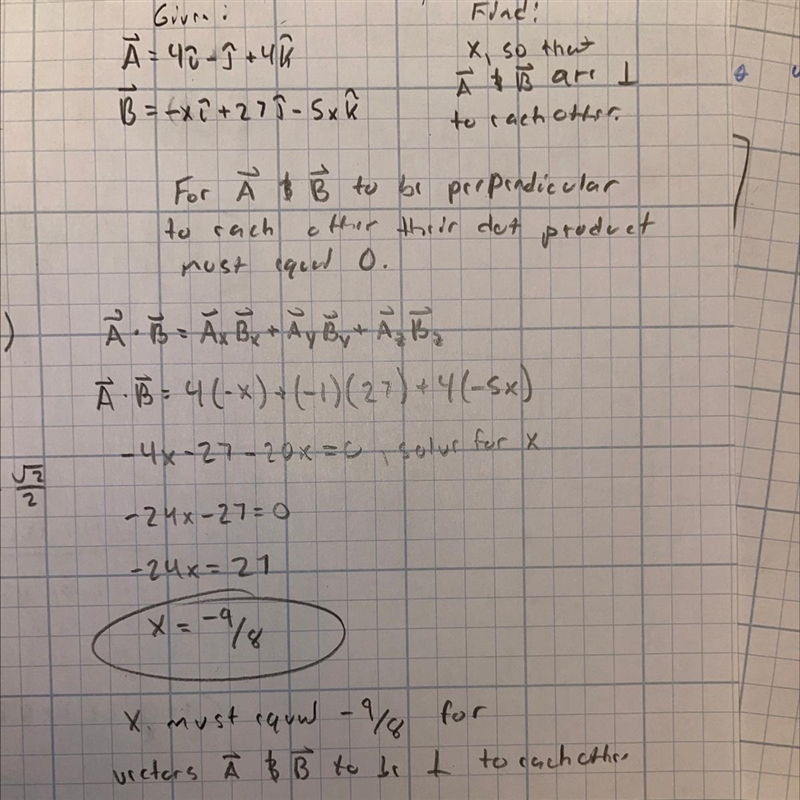 Given:
A⃗ = 4î - ĵ + 4k̂
B⃗ = -xî + 27ĵ - 5xk̂
Find:
x, so that
A⃗ & B⃗ are ⊥
to each other.
For A⃗ & B⃗ to be perpendicular
to each other their dot product
must equal 0.
)
A⃗ · B⃗ = A⃗ₓB⃗ₓ + A⃗ᵧB⃗ᵧ + A⃗_zB⃗_z
A⃗ · B⃗ = 4(-x) + (-1)(27) + 4(-5x)
-4x - 27 - 20x = 0, solve for x
√2/2
-24x - 27 = 0
-24x = 27
x = -9/8
x must equal -9/8 for
vectors A⃗ & B⃗ to be ⊥ to each other